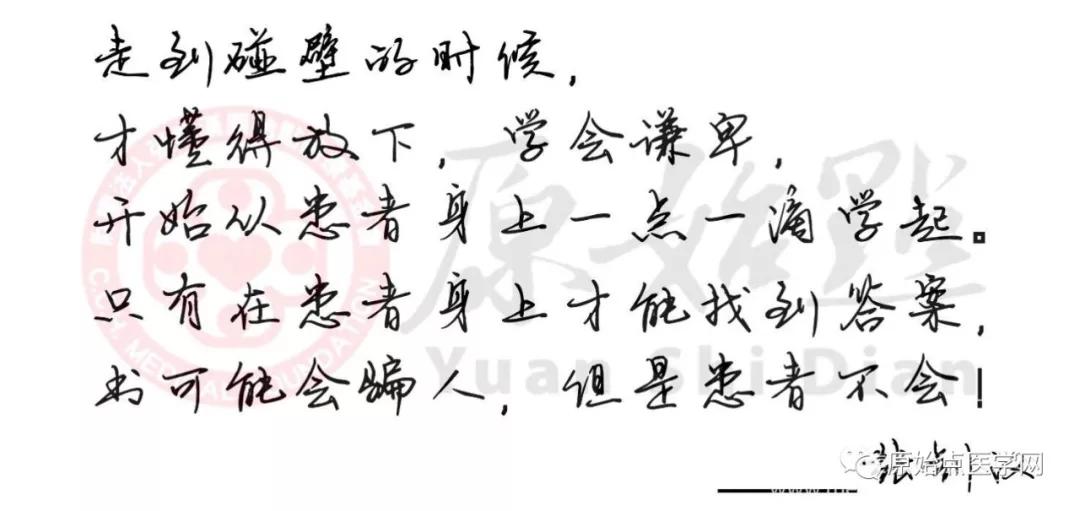 走到碰壁的时候，
才懂得放下，学会谦卑，
开始从患者身上一点一滴学起。
只有在患者身上才能找到答案，
书可能会骗人，但是患者不会！
张钊汉
原始点医学网
原始點
Yuan Shi Dian
MEDICAL FOUNDATION